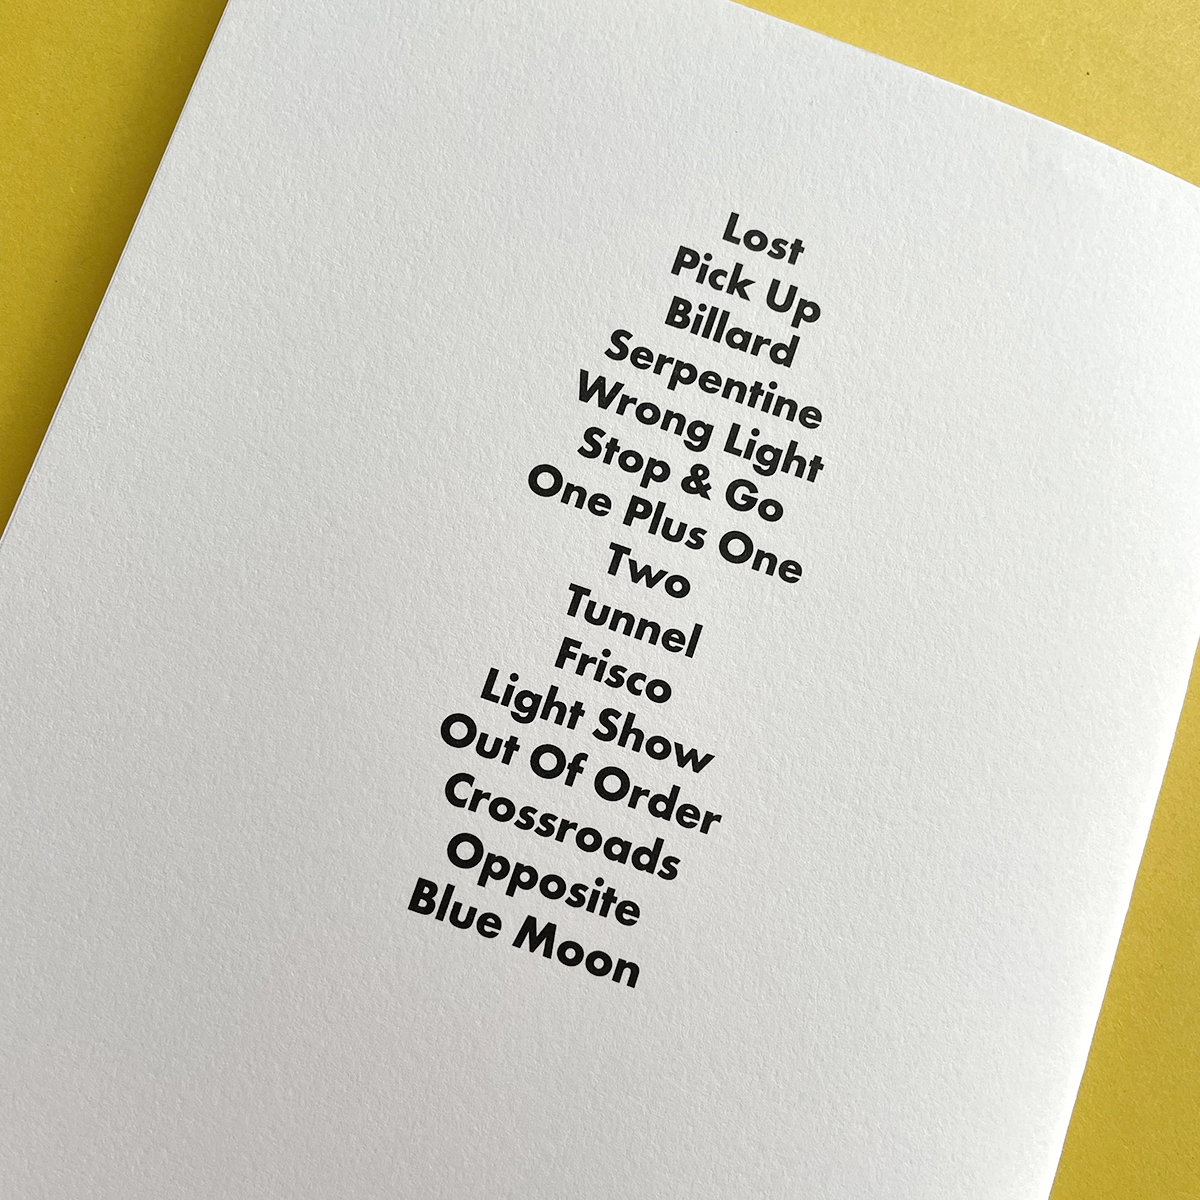 Lost
Pick Up
Billard
Serpentine
Wrong Light
Stop & Go
One Plus One
Two
Tunnel
Frisco
Light Show
Out Of Order
Crossroads
Opposite
Blue Moon